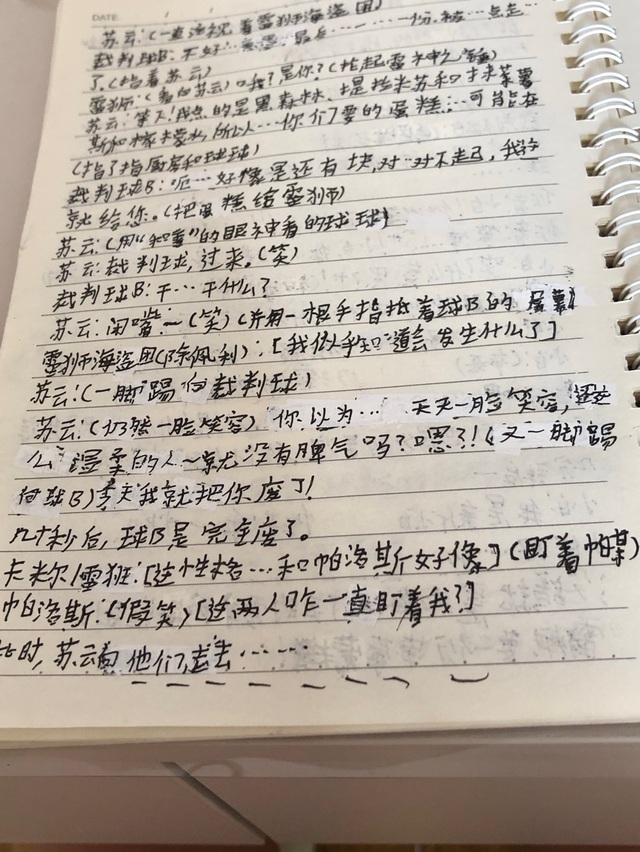 DATE
苏云:(一直注视着雷狮海盗团)
裁判球B:不好……最后……一份,被…点走
了。(指着苏云)
雷狮:(看向苏云)哦?是你?(抬起雷神之锤)
苏云:等下!我点的是黑森林、提拉米苏和抹茶慕
斯和柠檬水,所以…你们要的蛋糕…可能在
(指了指厨房和球球)
裁判球B:呃…好像是还有块,对…对不起,我
就给你。(把蛋糕给雷狮)
苏云:(用“和善”的眼神看的球球)
苏云:裁判球,过来。(笑)
裁判球B:干…干什么?
苏云:闭嘴~(笑)(并用一根手指抵着球B的屏幕)
雷狮海盗团(除佩利):[我似乎知道会发生什么了]
苏云:(一脚踢向裁判球)
苏云:(仍然一脸笑容)你以为…天天一脸笑容,这
么温柔的人~就没有脾气吗?嗯?!(又一脚踢
向球B)今天我就把你废了!
几十秒后,球B是完全废了。
卡米尔/雷狮:[这个性格…和帕洛斯好像](盯着帕某)
帕洛斯:(假笑)[这两人咋一直盯着我?]
此时,苏云向他们走去……